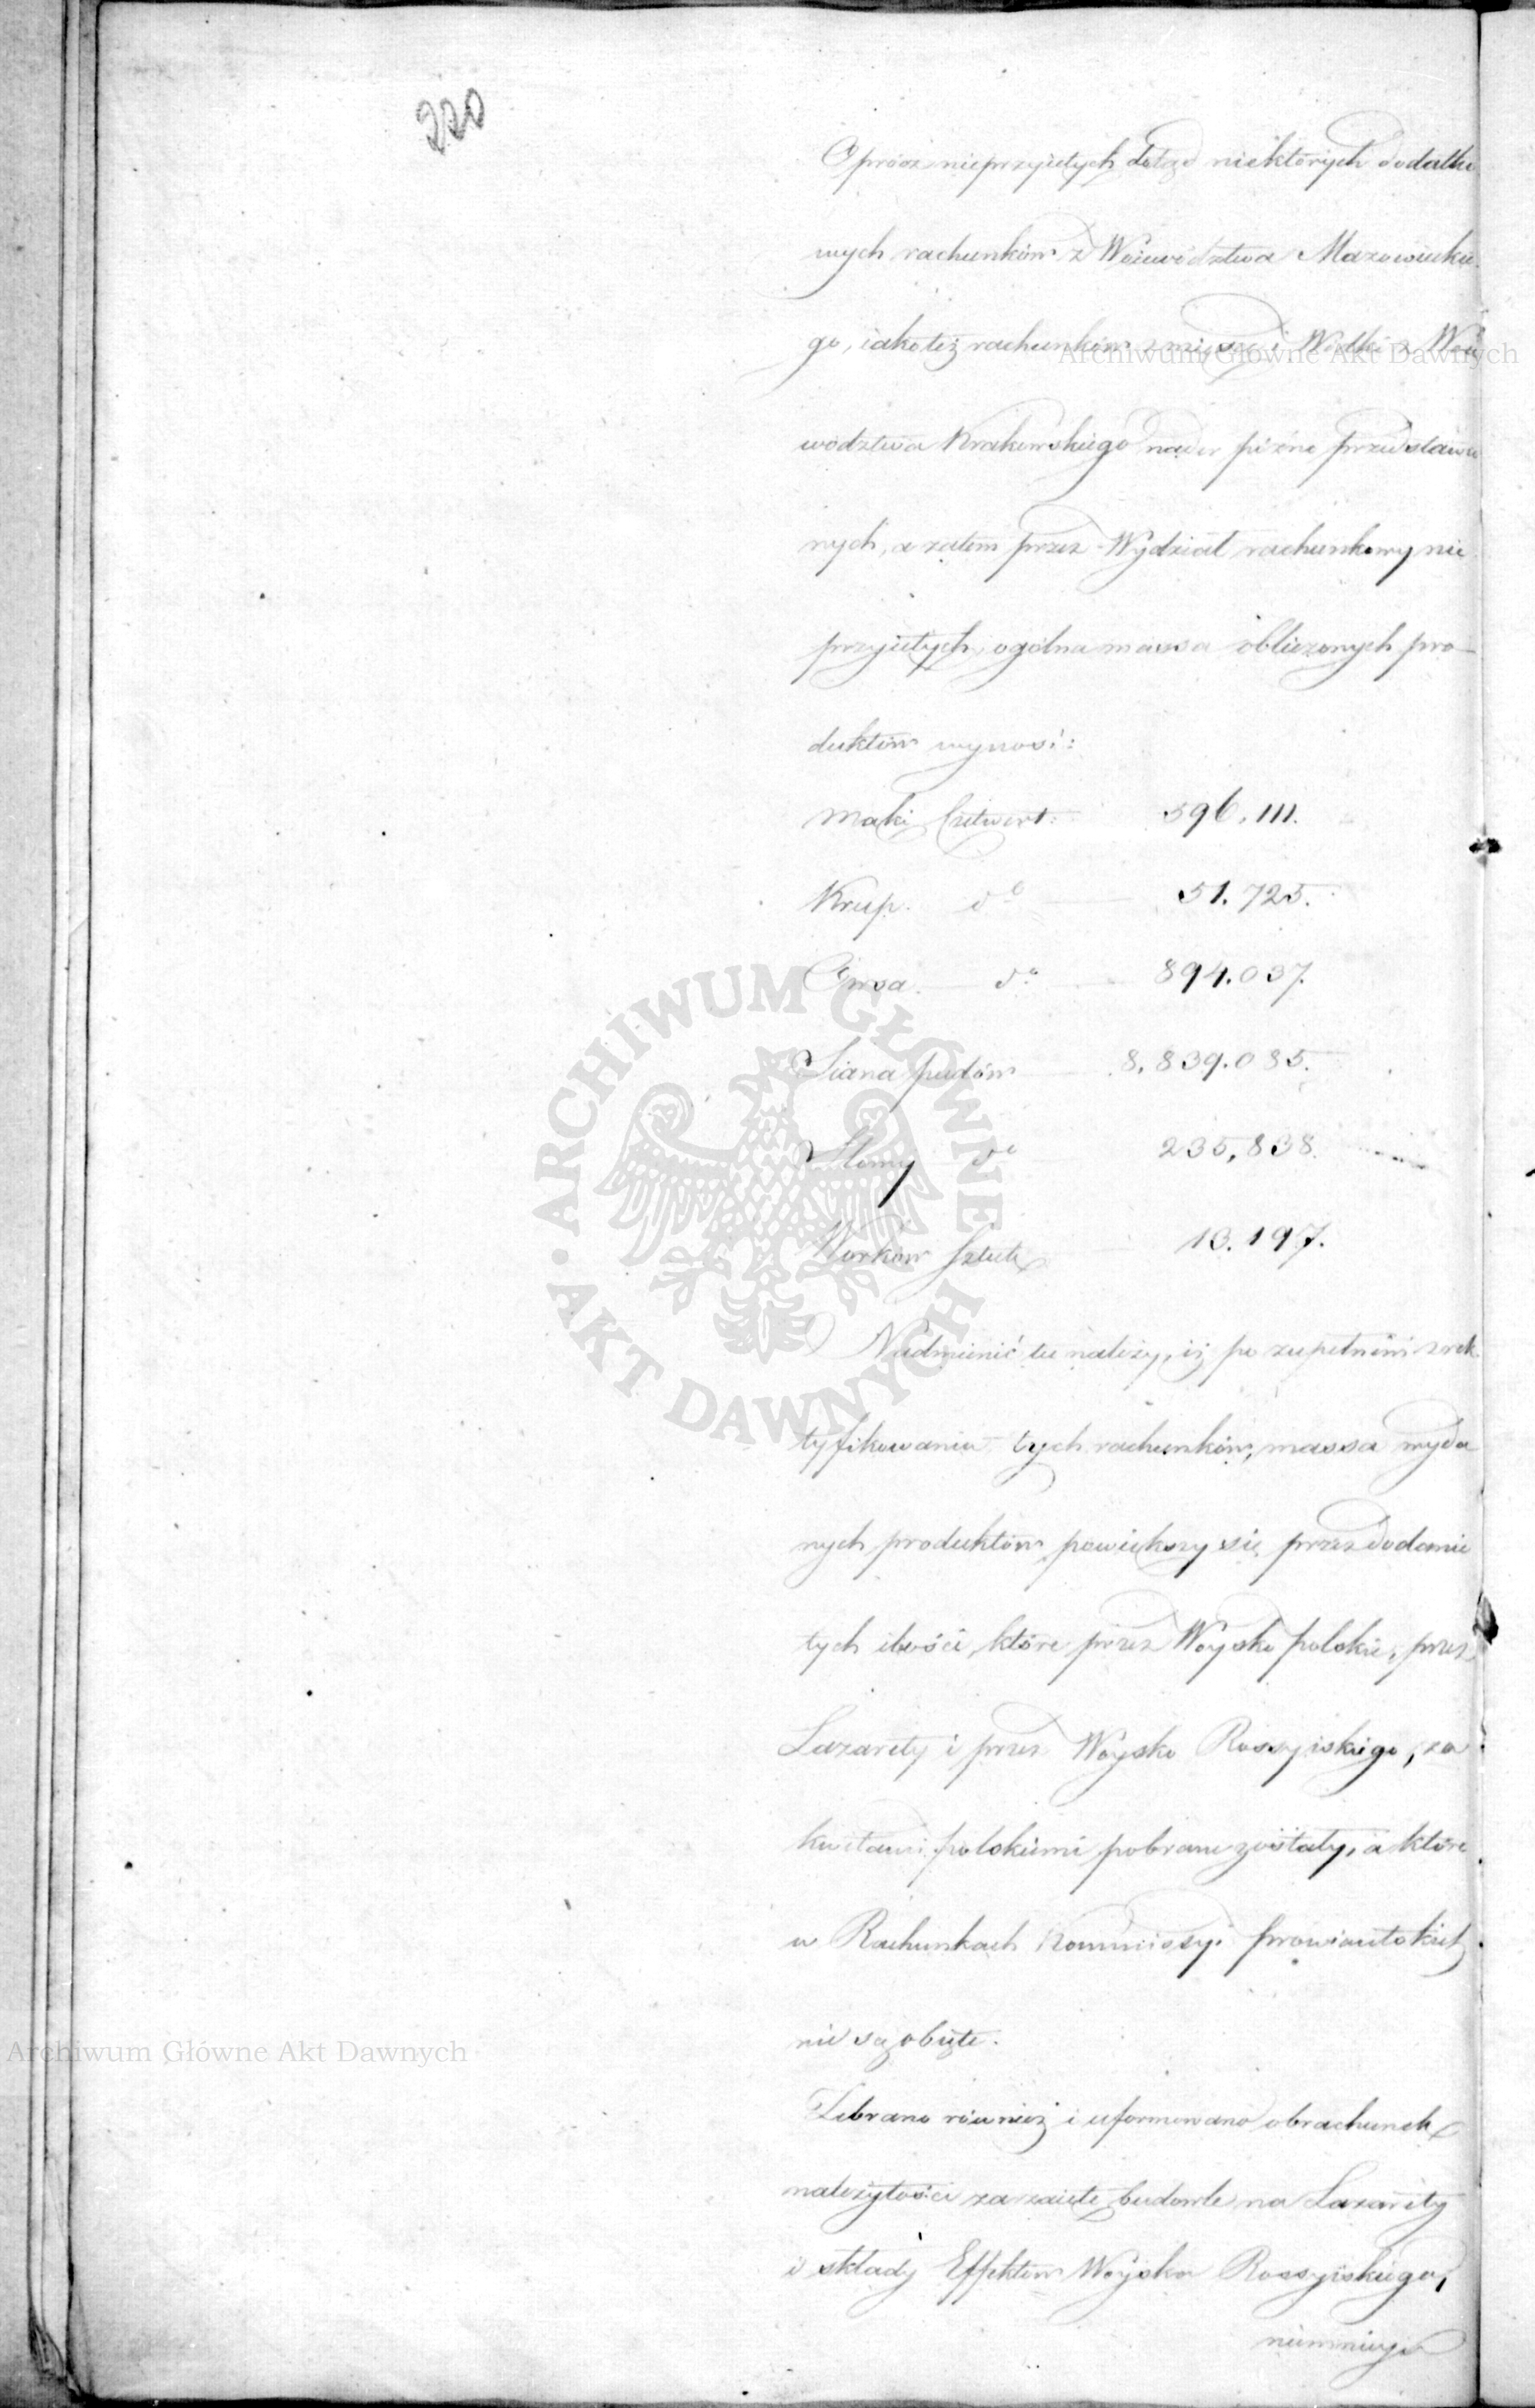 220
Oprócz nieprzyiętych dotąd niektórych dodatko
wych rachunków z Woiewództwa Mazowieckie
go, iako też rachunków z mięsa i Wódki z Woie
wództwa Krakowskiego nader późno przedstawio
nych, a zatem przez Wydział rachunkowy nie
przyiętych, ogólna massa obliczonych pro-
duktów wynosi:
Mąki Czetwert: 596,111.
Krup. do 51.725.
Owsa do 894.037.
Siana pudów 8,839.085.
Słomy do 235,838.
Worków Sztuk 13.197.
Nadmienić tu należy, iż po zupełném zrek
tyfikowaniu tych rachunków, massa wyda
nych produktów powiększy się przez dodanie
tych ilości, które przez Woysko polskie, przez
Lazarety i przez Woysko Rossyiskiego, za
kwitami polskiemi pobrane zostały, a które
w Rachunkach Kommissyi prowiantskich
nie są obięte.
Zebrano również i uformowano obrachunek
należytości za zaięte budowle na Lazarety
i składy Effektów Woyska Rossyiskiego,
niemniey
Archiwum Główne Akt Dawnych
ARCHIWUM GŁÓWNE AKT DAWNYCH
Archiwum Główne Akt Dawnych